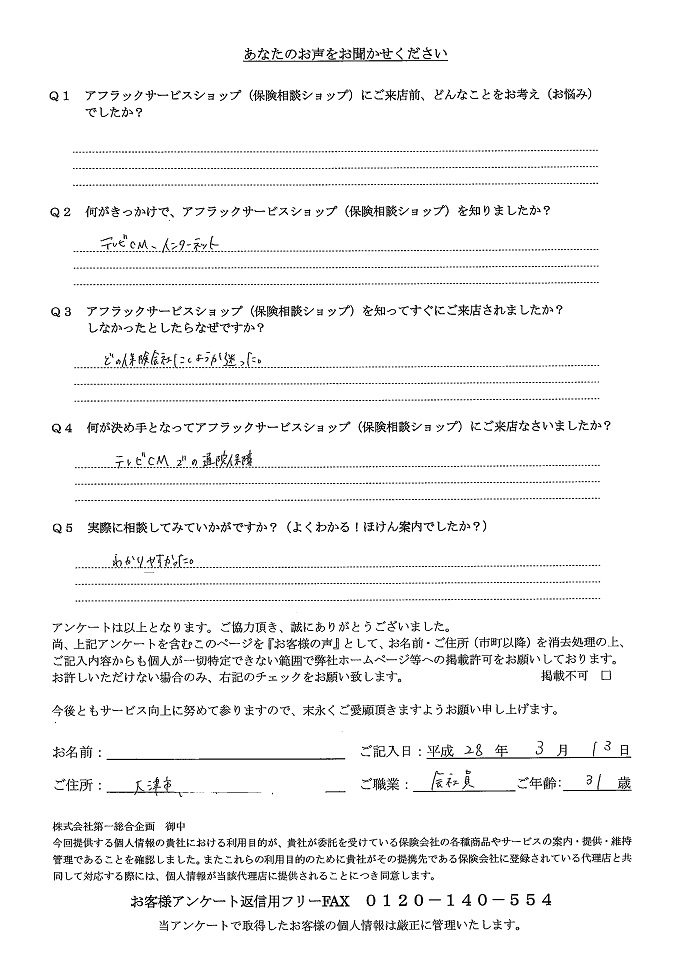 あなたのお声をお聞かせください
Q1 アフラックサービスショップ（保険相談ショップ）にご来店前、どんなことをお考え（お悩み）
でしたか？
Q2 何がきっかけで、アフラックサービスショップ（保険相談ショップ）を知りましたか？
テレビCM、インターネット
Q3 アフラックサービスショップ（保険相談ショップ）を知ってすぐにご来店されましたか？
しなかったとしたらなぜですか？
どの保険会社にしようか迷った。
Q4 何が決め手となってアフラックサービスショップ（保険相談ショップ）にご来店なさいましたか？
テレビCMでの通院保障
Q5 実際に相談してみていかがですか？（よくわかる！ほけん案内でしたか？）
わかりやすかった。
アンケートは以上となります。ご協力頂き、誠にありがとうございました。
尚、上記アンケートを含むこのページを『お客様の声』として、お名前・ご住所（市町以降）を消去処理の上、
ご記入内容からも個人が一切特定できない範囲で弊社ホームページ等への掲載許可をお願いしております。
お許しいただけない場合のみ、右記のチェックをお願い致します。 掲載不可 □
今後ともサービス向上に努めて参りますので、末永くご愛顧頂きますようお願い申し上げます。
お名前： ご記入日：平成 28 年 3 月 13 日
ご住所： 大津市 ご職業： 会社員 ご年齢: 31 歳
株式会社第一総合企画 御中
今回提供する個人情報の貴社における利用目的が、貴社が委託を受けている保険会社の各種商品やサービスの案内・提供・維持
管理であることを確認しました。またこれらの利用目的のために貴社がその提携先である保険会社に登録されている代理店と共
同して対応する際には、個人情報が当該代理店に提供されることにつき同意します。
お客様アンケート返信用フリーFAX 0120－140－554
当アンケートで取得したお客様の個人情報は厳正に管理いたします。